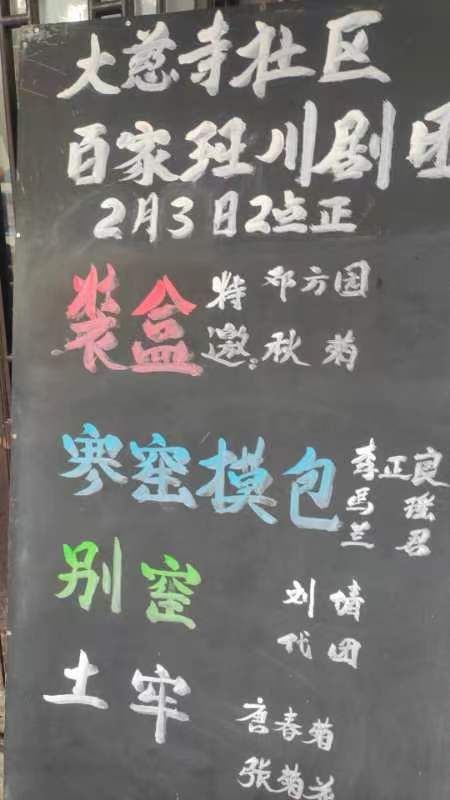 大慈寺社区
百家班川剧团
2月3日2点正
装盒 特邀: 邓方园
秋菊
寒窑摸包 李正良
冯瑶
兰君
别窑 刘靖
代团
土牢 唐春菊
张菊花